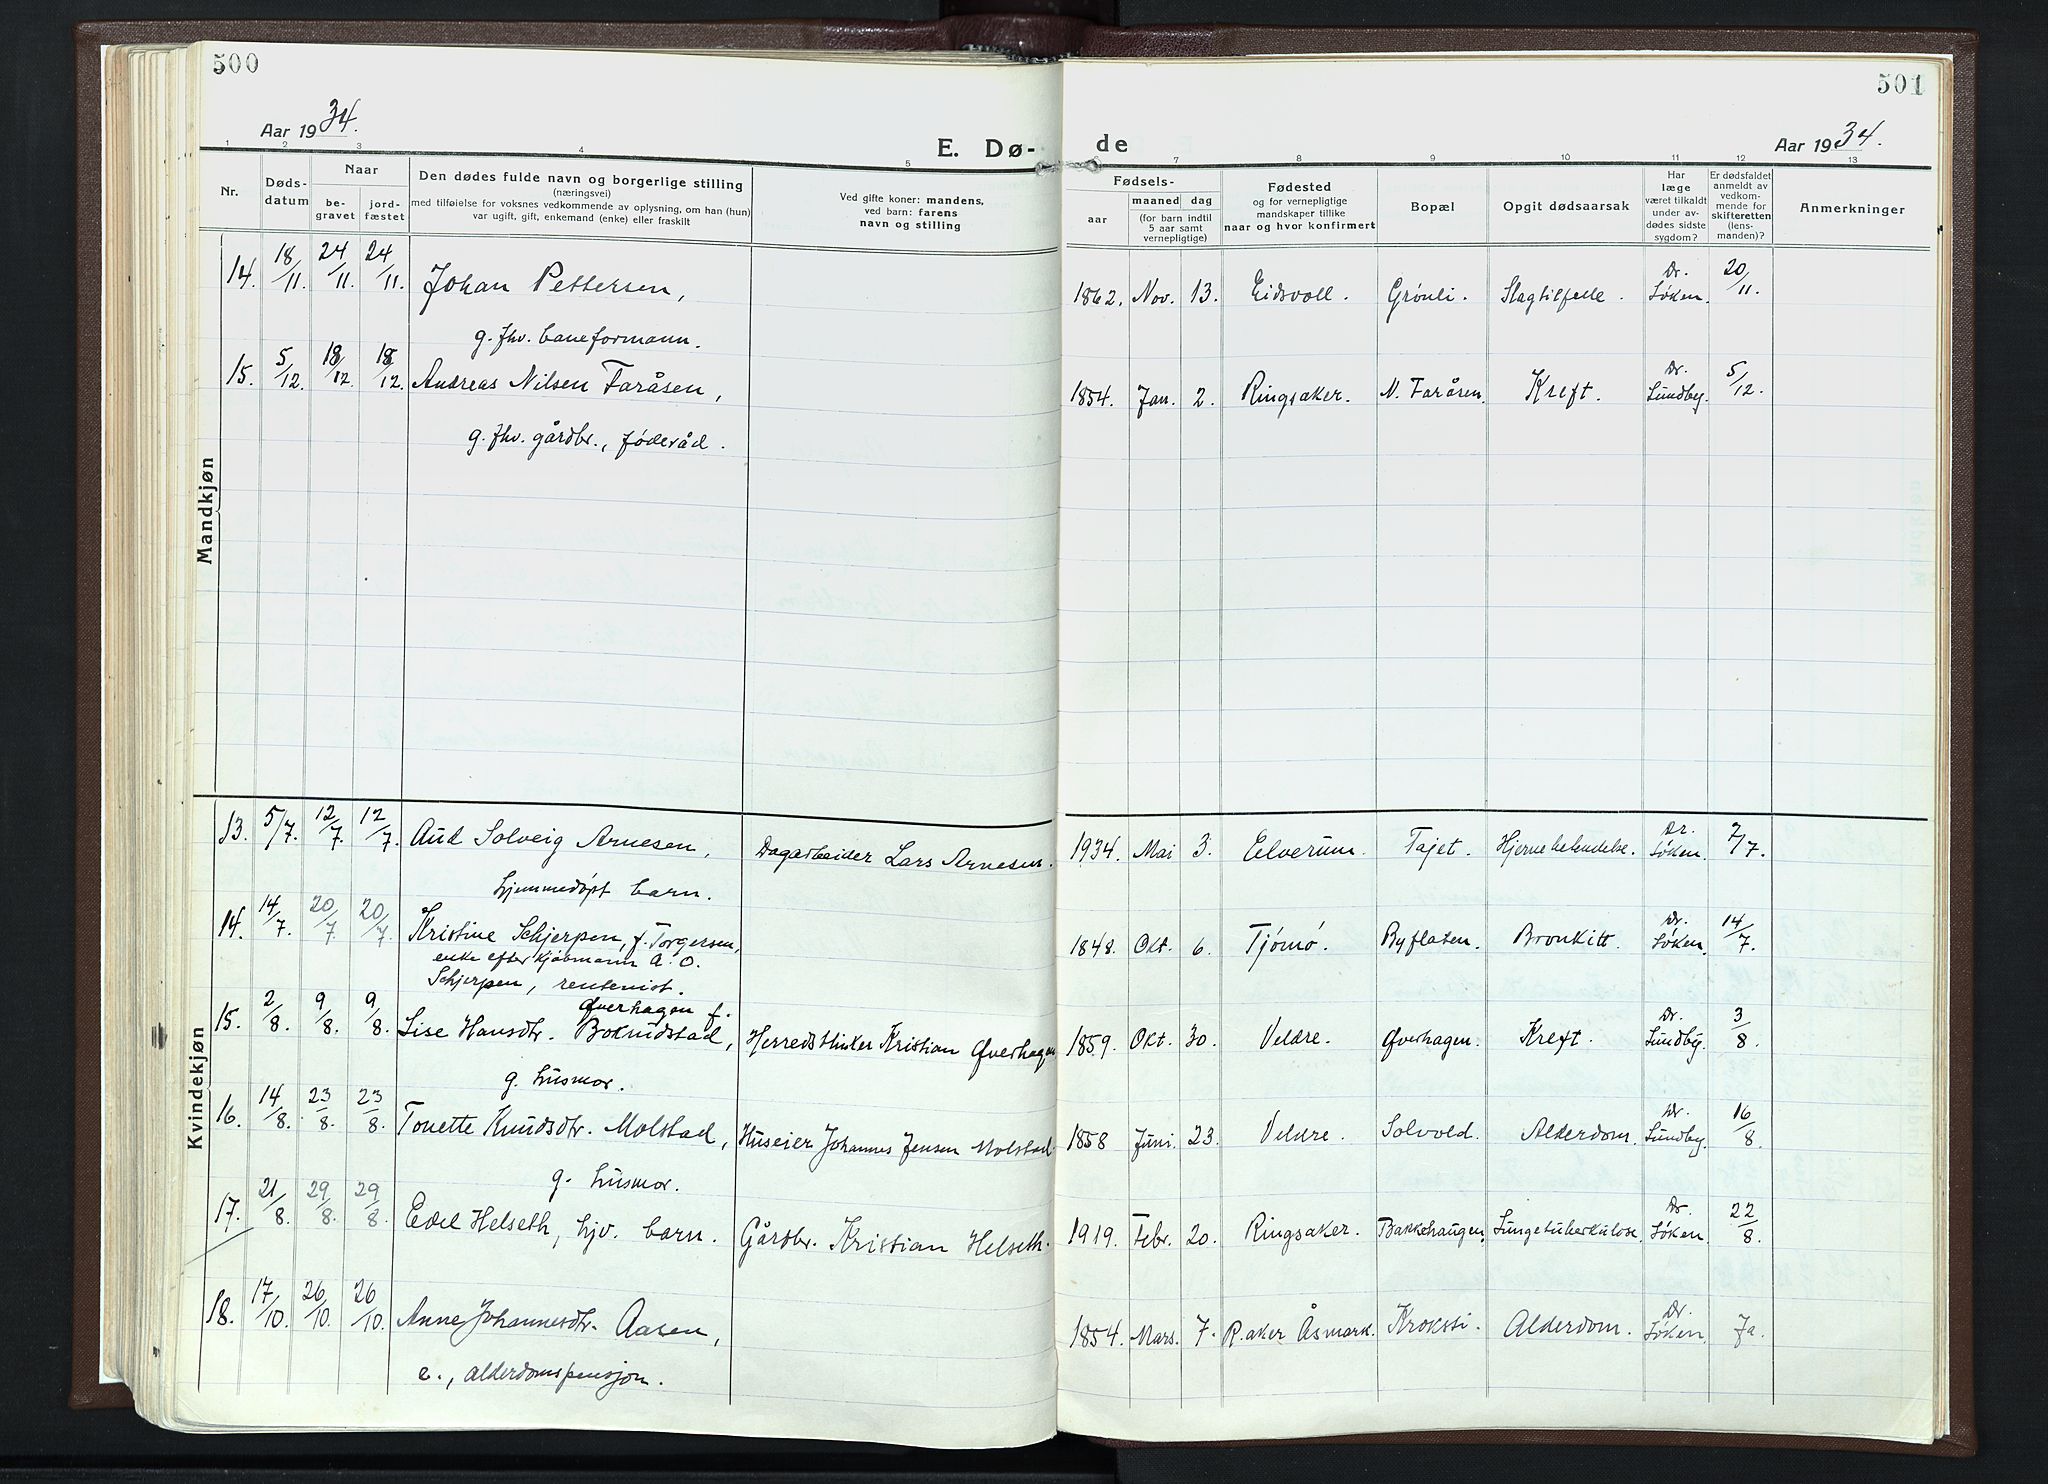 500
501
Aar 1934.
E. Dø-
de
Aar 1934.
1 2 3 4 5 7 8 9 10 11 12 13
Nr.
Døds-
datum
Naar
be-
gravet
jord-
fæstet
Den dødes fulde navn og borgerlige stilling
(næringsvei)
med tilføielse for voksnes vedkommende av oplysning, om han (hun)
var ugift, gift, enkemand (enke) eller fraskilt
Ved gifte koner: mandens,
ved barn: farens
navn og stilling
Fødsels-
aar
maaned dag
(for barn indtil
5 aar samt
vernepligtige)
Fødested
og for vernepligtige
mandskaper tillike
naar og hvor konfirmert
Bopæl
Opgit dødsaarsak
Har
læge
været tilkaldt
under av-
dødes sidste
sygdom?
Er dødsfaldet
anmeldt av
vedkom-
mende for
skifteretten
(lens-
manden)?
Anmerkninger
Mandkjøn
14. 18/11. 24/11. 24/11. Johan Pettersen, 1862. Nov. 13. Eidsvoll. Grönli. Slagtilfelle. Dr. Söken. 20/11.
g. fhv. baneformann.
15. 5/12. 18/12. 18/12. Andreas Nilsen Faråsen, 1854. Jan. 2. Ringsaker. N. Faråsen. Kreft. Dr. Lundby. 5/12.
g. fhv. gårdbr., föderåd.
Kvindekjøn
13. 5/7. 12/7. 12/7. Aud Solveig Arnesen, Dagarbeider Lars Arnesen. 1934. Mai 3. Elverum. Tajet. Hjernebetendelse. Dr. Söken. 7/7.
hjemmedöpt barn.
14. 14/7. 20/7. 20/7. Kristine Schjerpen, f. Torgersen, 1848. Okt. 6. Tjömö. Byflaten. Bronkitt. Dr. Söken. 14/7.
enke efter kjöbmann A. O.
Schjerpen, rentenist.
Øverhagen f.
15. 2/8. 9/8. 9/8. Lise Hansdtr. Bokndstad, Herredskasserer Kristian Øverhagen 1859. Okt. 30. Veldre. Øverhagen. Kreft. Dr. Lundby. 3/8.
g. husmor.
16. 14/8. 23/8. 23/8. Tonette Knudsdtr. Molstad, Huseier Johannes Jensen Molstad 1858 Juni. 23. Veldre. Solvold. Alderdom. Dr. Lundby. 16/8.
g. husmor.
17. 21/8. 29/8. 29/8. Edel Helseth, hjv. barn. Gårdbr. Kristian Helseth. 1919. Febr. 20. Ringsaker. Bakkehaugen. Lungetuberkulose. Dr. Söken. 22/8.
18. 17/10. 26/10. 26/10. Anne Johannesdtr. Aasen, 1854. Mars. 7. R.aker Åsmark. Kroksti. Alderdom. Dr. Söken. Ja.
e., alderdomspensjon.